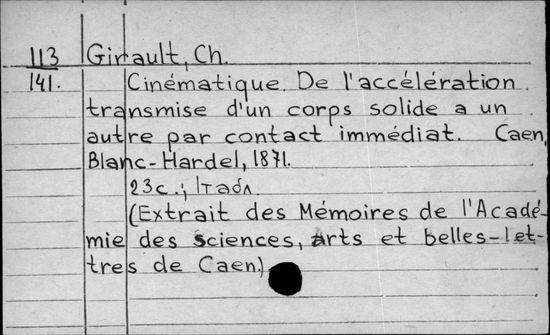 113 Girault, Ch.
141. Cinématique. De l'accélération
transmise d'un corps solide a un
autre par contact immédiat. Caen,
Blanc-Hardel, 1871.
23с.; 1табл.
(Extrait des Mémoires de l'Acadé-
mie des sciences, arts et belles-let-
tres de Caen.)